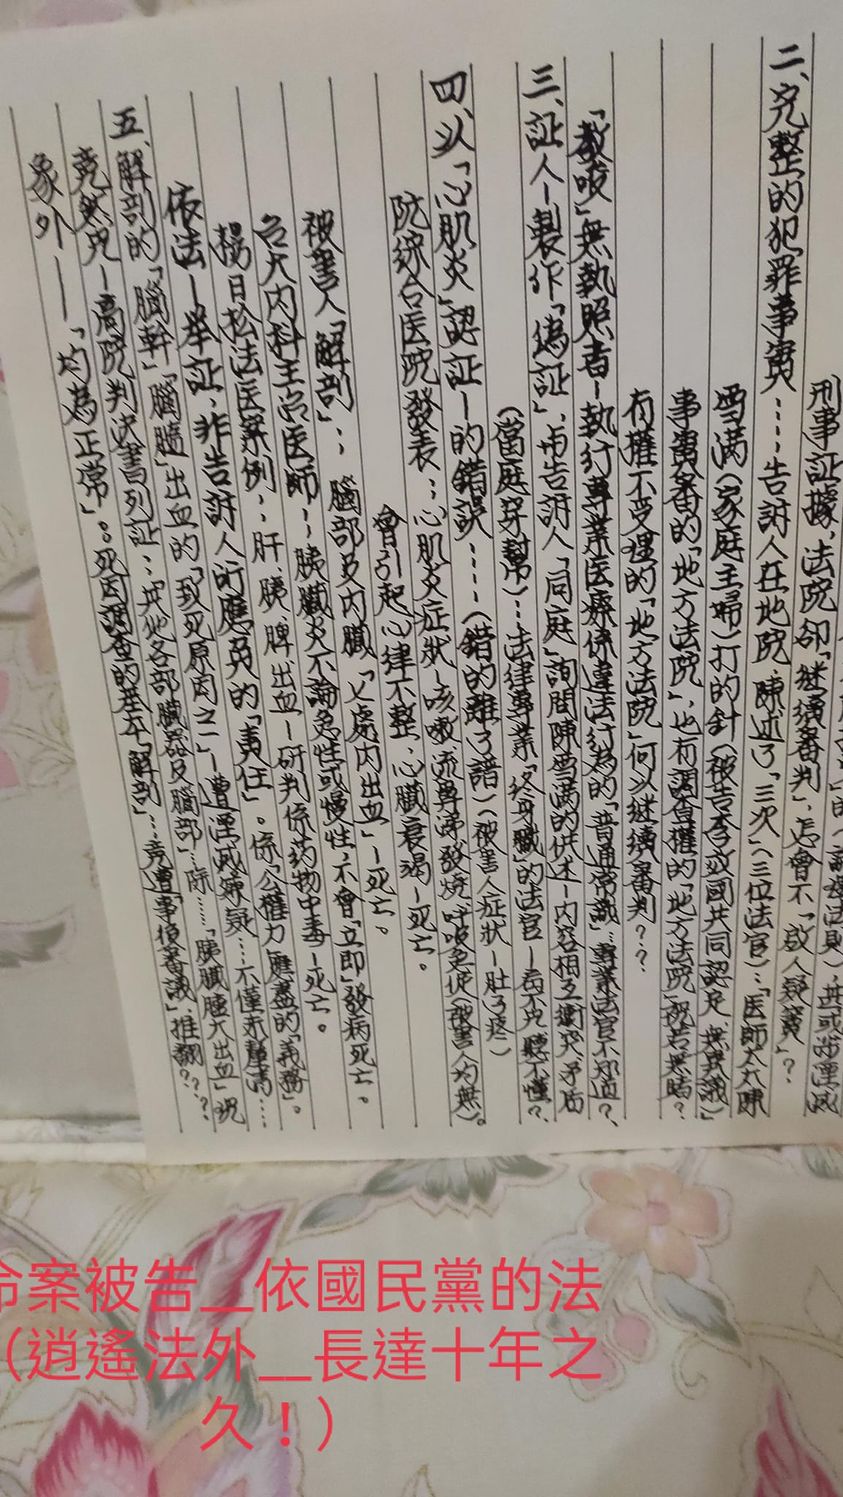 刑事証據，法院卻「継續審判」，怎會不「啟人疑竇」？
二、完整的犯罪事實……告訴人在地院陳述了「三次」（三位法官）…「医師太太陳
雪满（家庭主婦）打的針（被告李或國共同認定，無異議）」
事實審的「地方法院」，也有調查權的「地方法院」視若無睹？
有權不受理的「地方法院」何以継續審判？？
「教唆」無執照者－執行專業医療係違法行為的「普通常識」…專業法官不知道？、
三、証人－製作「偽証」，与告訴人「同庭」詢問陳雪满的供述－内容相互衝突、矛盾
（當庭穿幫）…法律專業「終身職」的法官－看不見聽不懂？
四、以「心肌炎」認証－的錯誤……（錯的離了譜）（被害人症狀－肚子疼）
院綜合医院發表：心肌炎症狀－咳嗽流鼻涕發燒呼吸急促（被害人均無）。
會引起心律不整，心臟衰竭－死亡。
被害人「解剖」：腦部及内臟「乂處内出血」－死亡。
台大内科主治医師：胰臟炎不論急性或慢性，不會「立即」發病死亡。
楊日松法医案例：肝、胰、脾出血－研判係药物中毒－死亡。
依法－举証，非告訴人所應負的「責任」。係「公權力應盡的「義務」。
五、解剖的「腦幹」「腦髓」出血的「致死原因之一」－遭湮滅嫌疑…不僅未釐清……
竟然見－高院判決書列証：其他各部臟器及腦部…除……「胰臟腫大出血」現
象外——「均為正常」。死因調查的基本「解剖」…竟遭「事後審議」推翻？？？
命案被告__依國民黨的法
（逍遙法外__長達十年之
久！）